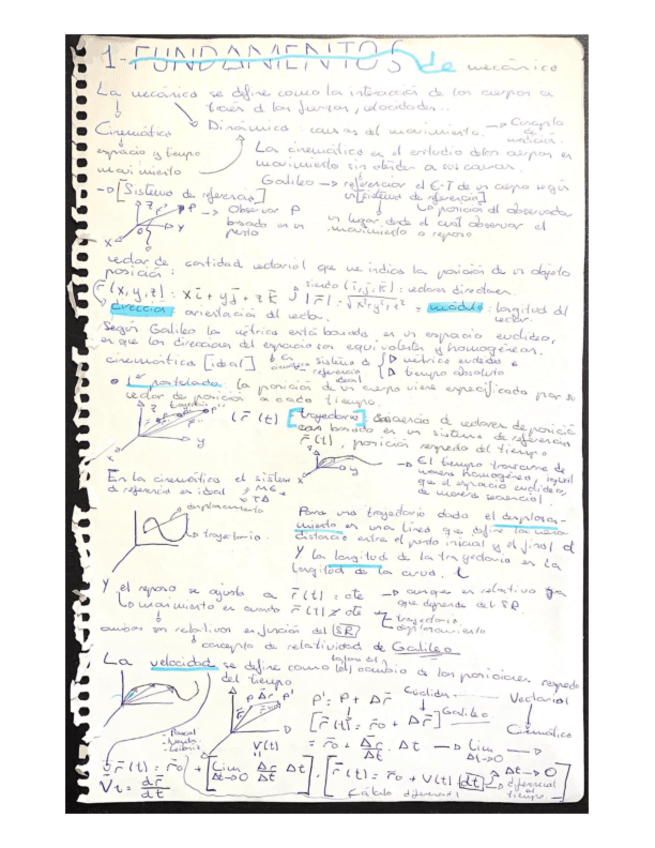 1-FUNDAMENTOS de mecánica
La mecánica se define como la interacción de los cuerpos a
través de las fuerzas, velocidades...
Cinemática
Dinámica: causas del movimiento. → Concepto de
espacio y tiempo
movimiento
La cinemática es el estudio de los cuerpos en
movimiento sin atender a sus causas.
Galileo → referenciar el E-T de un cuerpo según
un [sistema de referencia]
→ [Sistema de referencia]
→ Observar P
basado en un
punto
posición del observador
un lugar desde el cual observar el
movimiento o reposo
vector de cantidad vectorial que me indica la posición de un objeto
posición:
r̄(x,y,z): xī + yj̄ + zk̄
siendo (ī,j̄,k̄): vectores directores.
módulo: longitud del
vector.
dirección orientación del vector.
Según Galileo la métrica está basada en un espacio euclídeo,
en que las direcciones del espacio son equivalentes y homogéneas.
cinemática [ideal]
sistema de
referencia
ideal
métrica euclídea
tiempo absoluto
1er postulado: la posición de un cuerpo viene especificada por su
vector de posición a cada tiempo.
trayectoria
(r̄(t)
[trayectoria]: secuencia de vectores de posición
basado en un sistema de referencia
r̄(t), posición respecto del tiempo
→ El tiempo transcurre de
manera homogénea, igual
que el espacio euclídeo,
de manera secuencial.
En la cinemática el sistema
de referencia es ideal
desplazamiento
trayectoria
Para una trayectoria dada el desplaza-
miento es una línea que define la
distancia entre el punto inicial y el final
Y la longitud de la trayectoria es la
longitud de la curva. L
Y el reposo se ajusta a r̄(t): cte → aunque es relativo ya
que depende del SR.
movimiento es cuando r̄(t) ≠ cte
trayectoria
desplazamiento
ambos son relativos en función del [SR]
concepto de relatividad de Galileo
La velocidad se define como el cambio de las posiciones respecto
del tiempo
P' = P + Δr̄
Vectorial
[r̄(t) = r̄o + Δr̄] Galileo
Cinemática
- Pascal
- Newton
- Leibniz
V(t)
= r̄o + Δr̄/Δt · Δt → Lim Δt→0
r̄(t) = r̄o + [Lim Δt→0 Δr̄/Δt Δt]
[r̄(t) = r̄o + V(t) [dt]
Δt→0
diferencial
tiempo
V̄t = dr̄/dt
Cálculo diferencial